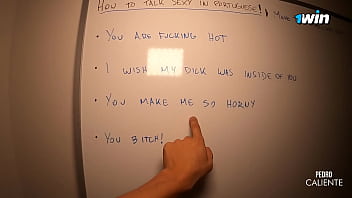 HOW TO TALK SEXY IN PORTUGUESE!
1win
• YOU ARE FUCKING HOT
• I WISH MY DICK WAS INSIDE OF YOU
• YOU MAKE ME SO HORNY
• YOU BITCH!
PEDRO
CALIENTE